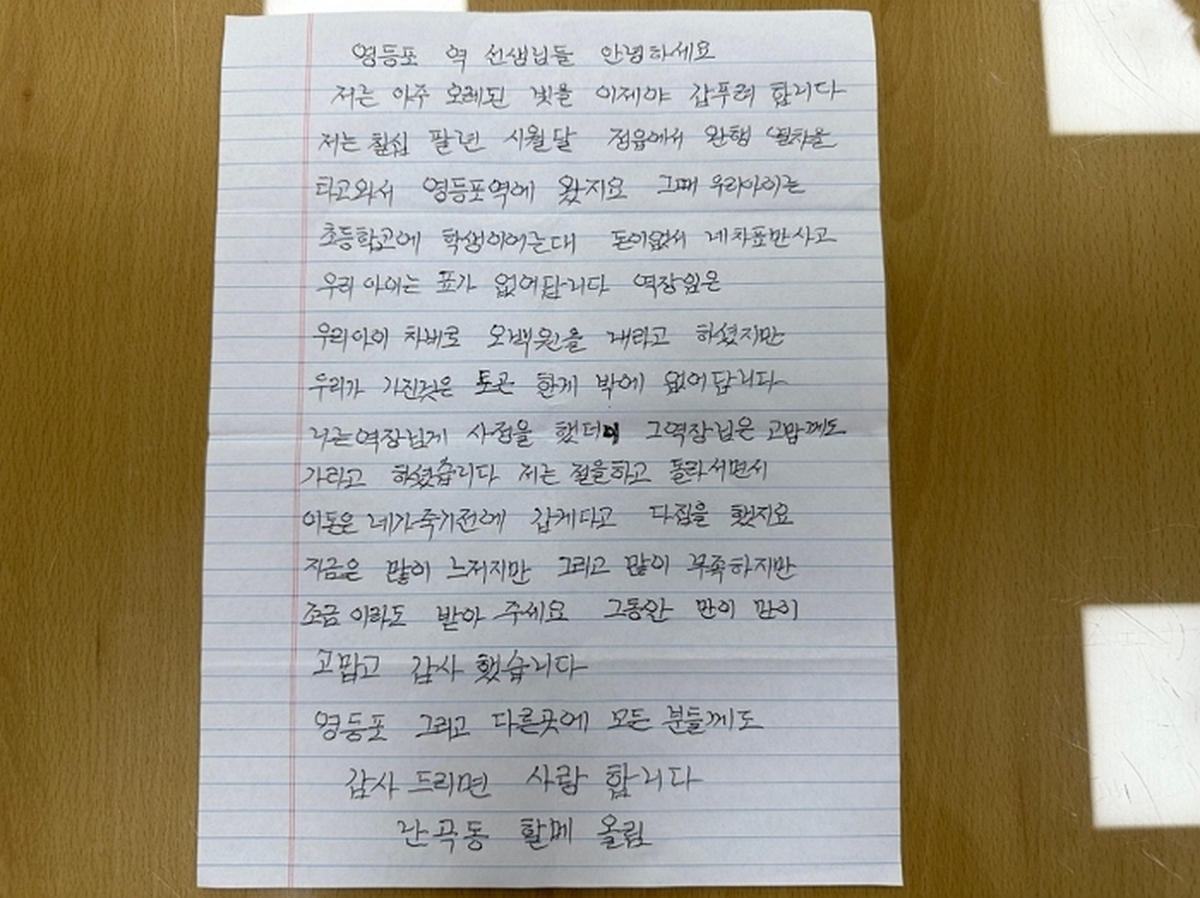 영등포 역 선생님들 안녕하세요
저는 아주 오레된 빛을 이제야 갑푸려 합니다
저는 칠십 팔년 시월달 정읍에서 완행 열차을
타고와서 영등포역에 왔지요 그때 우리아이는
초등학고에 학생이어는대 돈이없서 네차표만사고
우리 아이는 표가 없어답니다 역장임은
우리아이 차비로 오백원을 내라고 하셨지만
우리가 가진것은 토곤 한게 밖에 없어답니다
나는역장님게 사정을 했더니 그역장님은 고맙께도
가라고 하셨습니다 저는 절을하고 돌라서면서
이돈은 네가죽기전에 갑게다고 다짐을 했지요
지금은 많이 느저지만 그리고 많이 부족하지만
조금이라도 받아 주세요 그동안 만이 만이
고맙고 감사 했습니다
영등포 그리고 다른곳에 모든 분들께도
감사 드리면 사람 합니다
난곡동 할메 올림